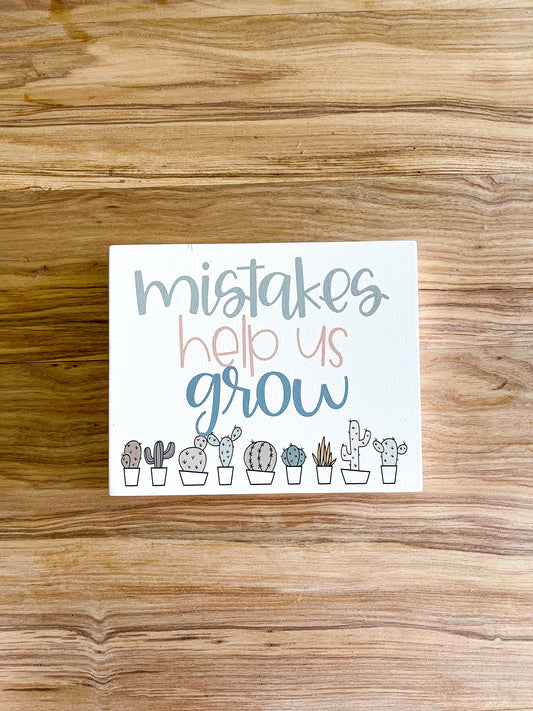 mistakes
help us
grow